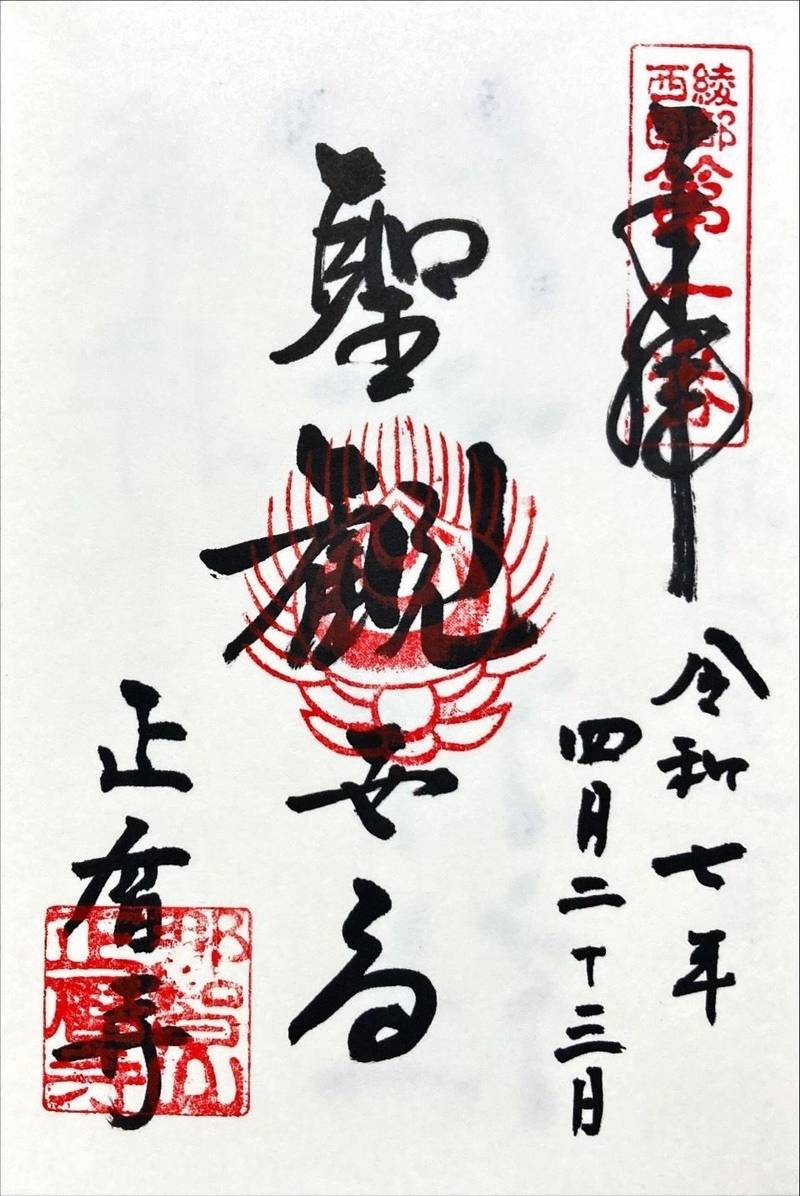 綾部
西国
第一番
奉拝
令和七年
四月二十三日
聖観世音
正暦寺
那智山
正暦寺